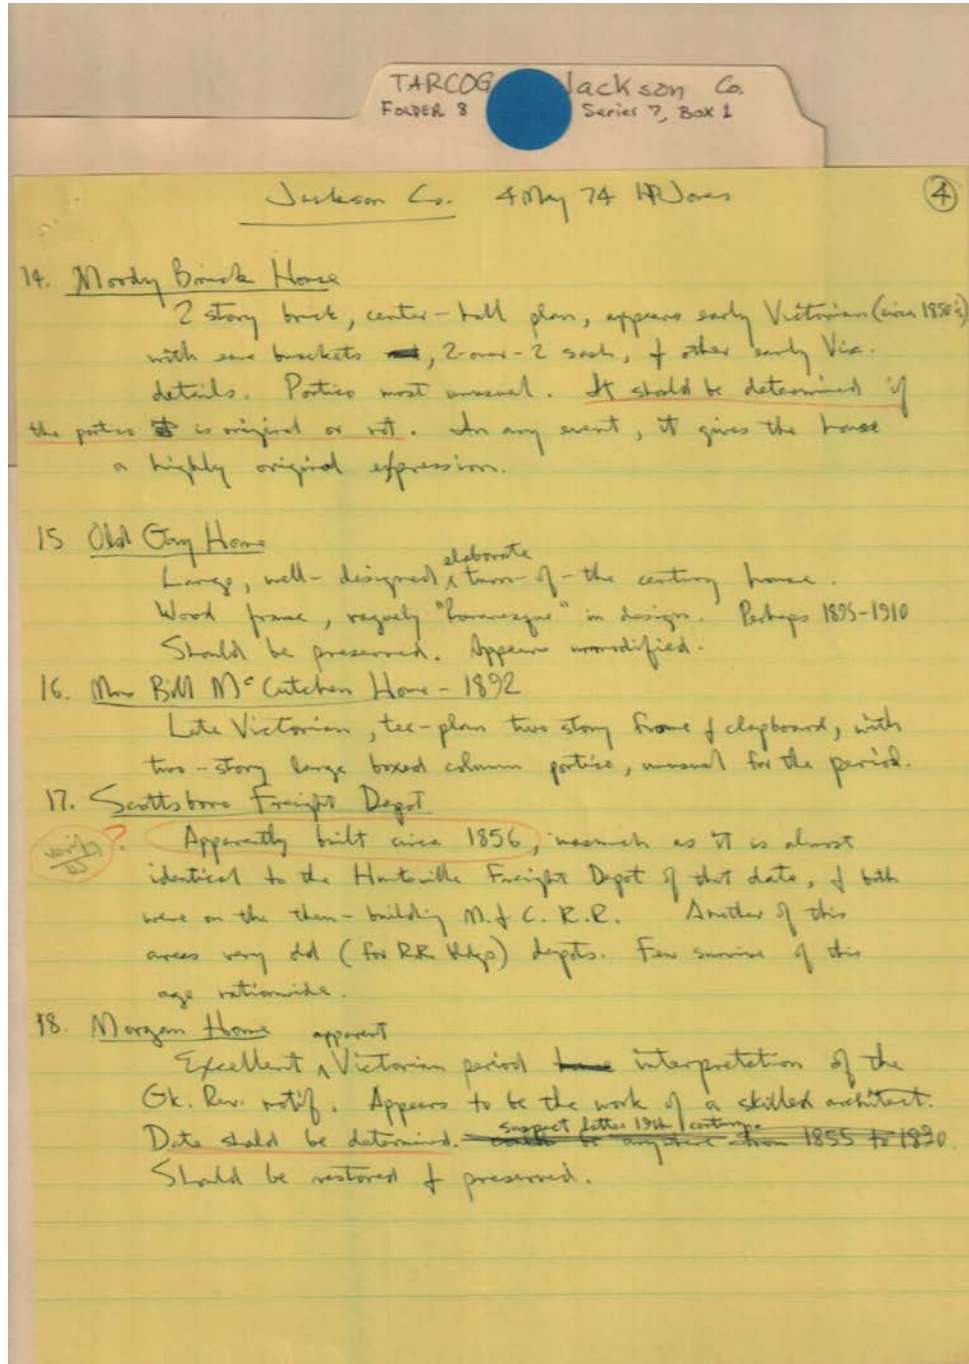 TARCOG Jackson Co.
FOLDER 8 Series 7, Box 1
Jackson Co. 4 May 74 HPJones 4
14. Moody Brick House
2 story brick, center-hall plan, appears early Victorian (circa 1850's)
with eave brackets, 2-over-2 sash, & other early Vic.
details. Portico most unusual. It should be determined if
the portico is original or not. In any event, it gives the house
a highly original expression.
15 Old Gay Home
Large, well-designed elaborate turn-of-the century house.
Wood frame, vaguely "Romanesque" in design. Perhaps 1895-1910
Should be preserved. Appears unmodified.
16. Mrs Bill McCutchen Home - 1892
Late Victorian, tee-plan two story frame & clapboard, with
two-story large boxed column portico, unusual for the period.
17. Scottsboro Freight Depot
? Apparently built circa 1856, inasmuch as it is almost
identical to the Huntsville Freight Depot of that date, & both
were on the then-building M. & C. R.R. Another of this
areas very old (for RR bldgs) depots. Few survive of this
age nationwide.
18. Morgan Home
Excellent apparent Victorian period interpretation of the
Gk. Rev. motif. Appears to be the work of a skilled architect.
suspect latter 19th century
Date should be determined. could be anywhere from 1855 to 1890.
Should be restored & preserved.